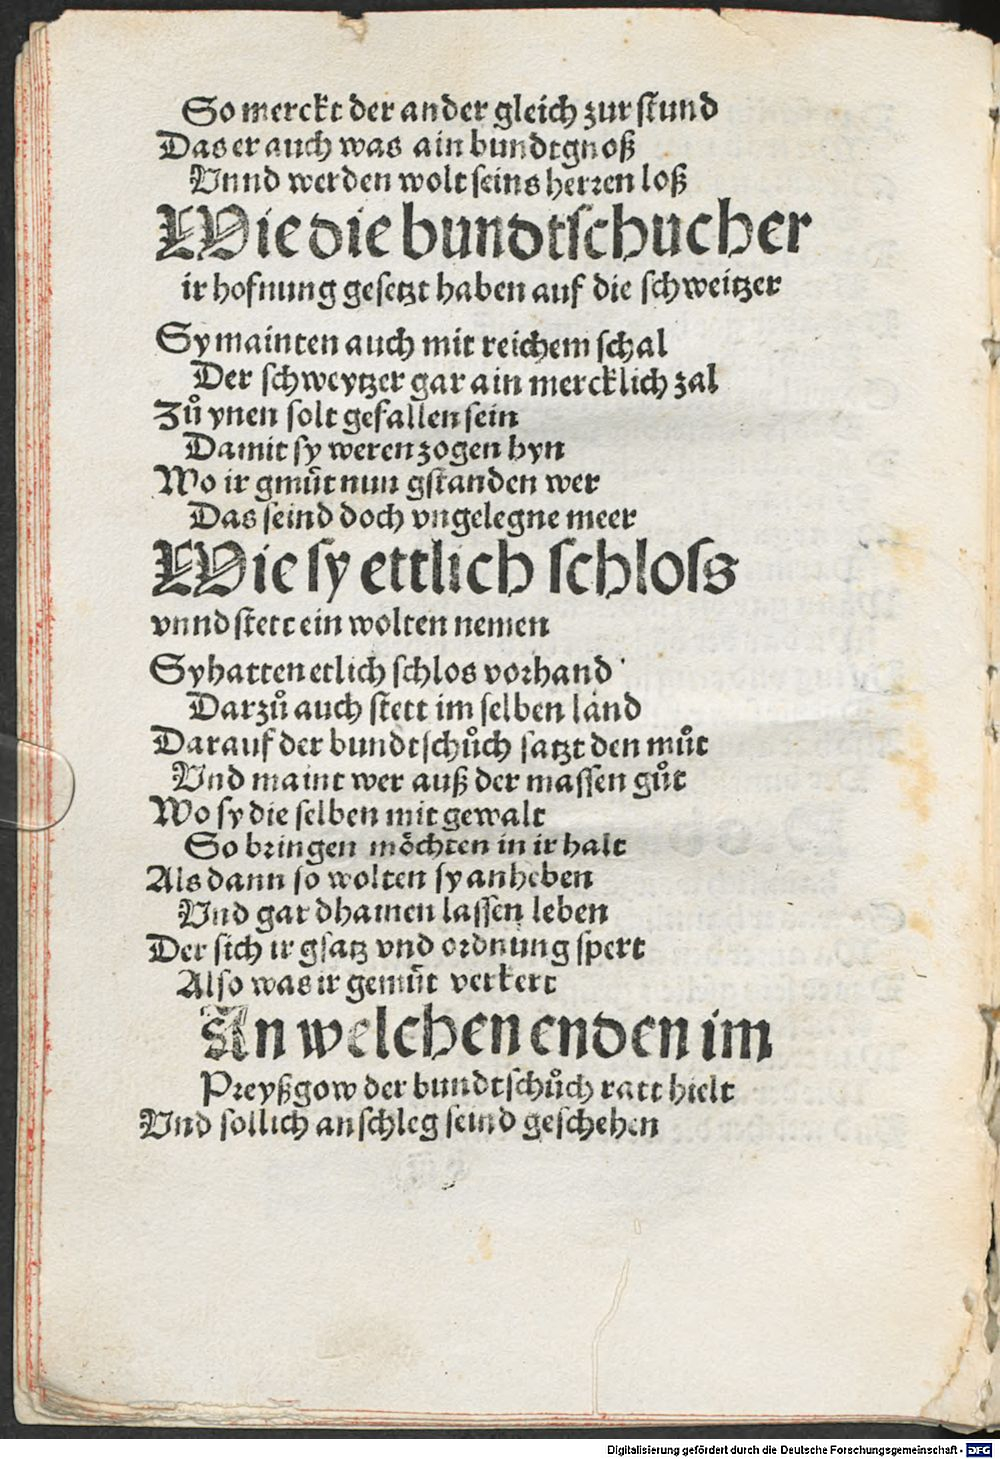 So merckt der ander gleich zur stund
Das er auch was ain bundtgnoß
Vnnd werden wolt seins herren loß
Wie die bundtschucher
ir hofnung gesetzt haben auf die schweitzer
Sy mainten auch mit reichem schal
Der schweytzer gar ain mercklich zal
Zuͦ ynen solt gefallen sein
Damit sy weren zogen hyn
Wo ir gmuͤt nun gstanden wer
Das seind doch vngelegne meer
Wie sy ettlich schloss
vnnd stett ein wolten nemen
Sy hatten etlich schlos vorhand
Darzuͦ auch stett im selben land
Darauf der bundtschuͦch satzt den muͦt
Vnd maint wer auß der massen guͦt
Wo sy die selben mit gewalt
So bringen moͤchten in ir halt
Als dann so wolten sy anheben
Vnd gar dhainen lassen leben
Der sich ir gsatz vnd ordnung spert
Also was ir gemuͤt verkert
An welchen enden im
Preyßgow der bundtschuͦch ratt hielt
Vnd sollich anschleg seind geschehen
Digitalisierung gefördert durch die Deutsche Forschungsgemeinschaft - DFG